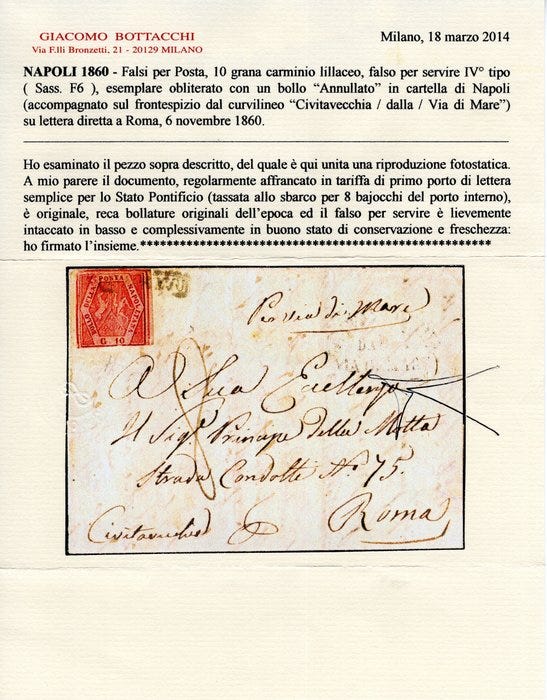 GIACOMO BOTTACCHI
Via F.lli Bronzetti, 21 - 20129 MILANO
Milano, 18 marzo 2014
NAPOLI 1860 - Falsi per Posta, 10 grana carminio lillaceo, falso per servire IV° tipo
( Sass. F6 ), esemplare obliterato con un bollo “Annullato” in cartella di Napoli
(accompagnato sul frontespizio dal curvilineo “Civitavecchia / dalla / Via di Mare”)
su lettera diretta a Roma, 6 novembre 1860.
Ho esaminato il pezzo sopra descritto, del quale è qui unita una riproduzione fotostatica.
A mio parere il documento, regolarmente affrancato in tariffa di primo porto di lettera
semplice per lo Stato Pontificio (tassata allo sbarco per 8 bajocchi del porto interno),
è originale, reca bollature originali dell’epoca ed il falso per servire è lievemente
intaccato in basso e complessivamente in buono stato di conservazione e freschezza:
ho firmato l’insieme.**************************************************
BOLLO DELLA POSTA NAPOLETANA
G 10
Per via di Mare
A Sua Eccellenza
Il Sigr. Principe della Motta
Strada Condotti No. 75.
Roma
Civitavecchia